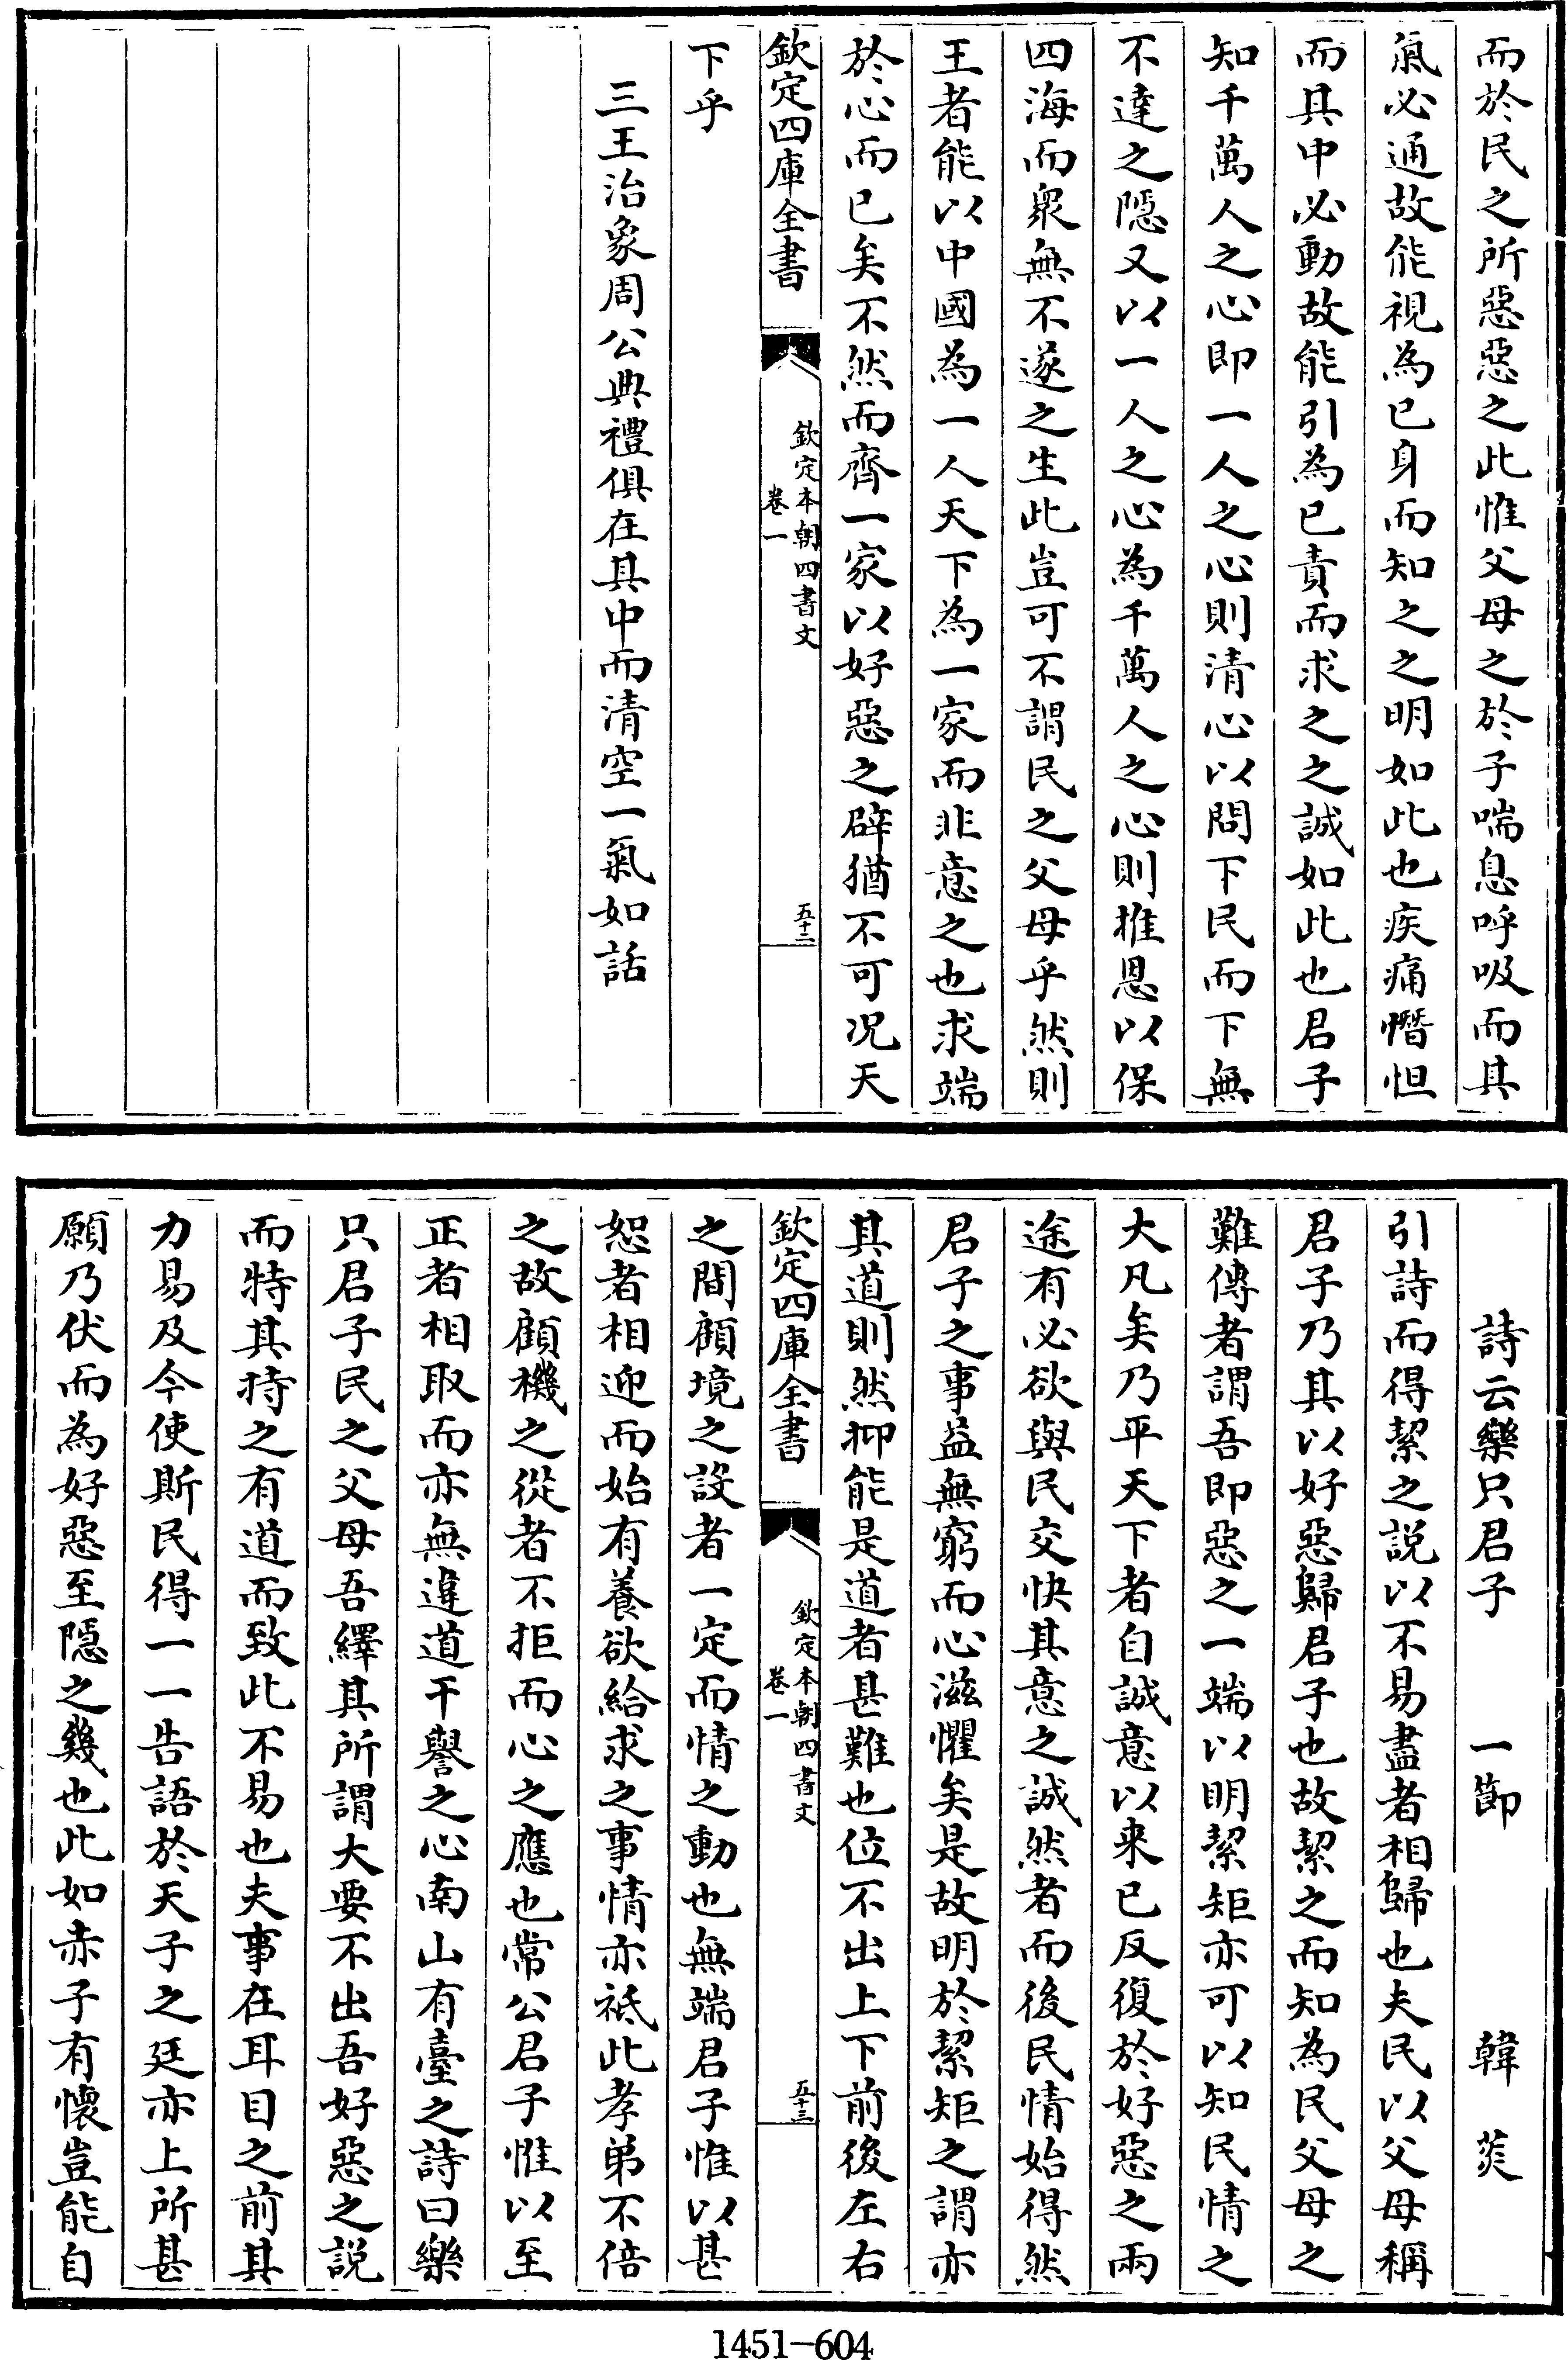 而於民之所惡惡之此惟父母之於子喘息呼吸而其
氣必通故能視為已身而知之之明如此也疾痛憯怛
而其中必動故能引為已責而求之之誠如此也君子
知千萬人之心即一人之心則清心以問下民而下無
不達之隱又以一人之心為千萬人之心則推恩以保
四海而衆無不遂之生此豈可不謂民之父母乎然則
王者能以中國為一人天下為一家而非意之也求端
於心而已矣不然而齊一家以好惡之辟猶不可况天
欽定四庫全書
欽定本朝四書文
卷一
五十二
下乎
三王治象周公典禮俱在其中而清空一氣如話
詩云樂只君子 一節 韓菼
引詩而得絜之說以不易盡者相歸也夫民以父母稱
君子乃其以好惡歸君子也故絜之而知為民父母之
難傳者謂吾即惡之一端以明絜矩亦可以知民情之
大凡矣乃平天下者自誠意以来已反復於好惡之兩
途有必欲與民交快其意之誠然者而後民情始得然
君子之事益無窮而心滋懼矣是故明於絜矩之謂亦
其道則然抑能是道者甚難也位不出上下前後左右
欽定四庫全書
欽定本朝四書文
卷一
五十三
之間顧境之設者一定而情之動也無端君子惟以甚
恕者相迎而始有養欲給求之事情亦祇此孝弟不倍
之故顧機之從者不拒而心之應也常公君子惟以至
正者相取而亦無違道干譽之心南山有臺之詩曰樂
只君子民之父母吾繹其所謂大要不出吾好惡之說
而特其時之有道而致此不易也夫事在耳目之前其
力易及今使斯民得一一告語於天子之廷亦上所甚
願乃伏而為好惡至隱之幾也此如赤子有懷豈能自
1451-604